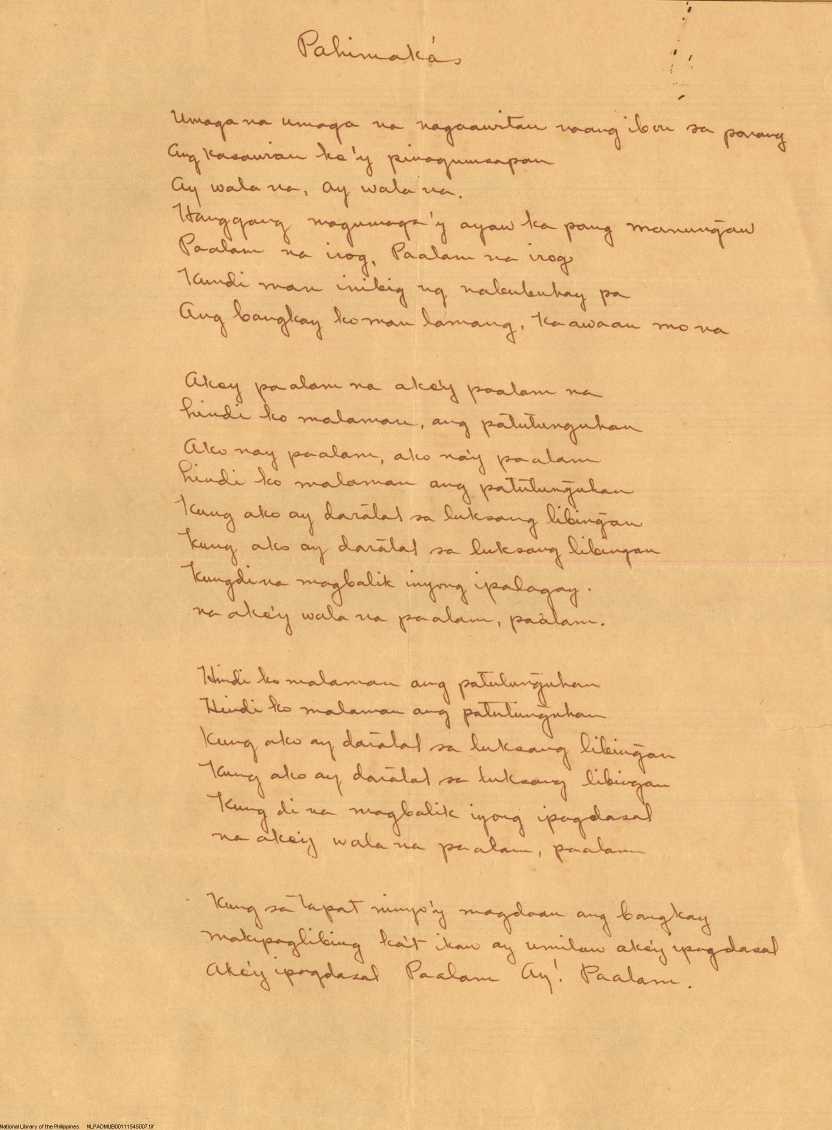 Pahimakás
Umaga na umaga na nagaawitan naang ibon sa parang
Ang kasawian ko'y pinaguusapan
Ay wala na, ay wala na.
Hanggang magumaga'y ayaw ka pang manungaw
Paalam na irog, Paalam na irog
Kundi man inibig ng nabubuhay pa
Ang bangkay ko man lamang, kaawaan mo na
Akoy paalam na ako'y paalam na
hindi ko malaman, ang patutunguhan
Ako nay paalam, ako na'y paalam
hindi ko malaman ang patutunguhan
Kung ako ay daratal sa luksang libingan
Kung ako ay daratal sa luksang libingan
Kungdi na magbalik inyong ipalagay.
na ako'y wala na paalam, paalam.
Hindi ko malaman ang patutunguhan
Hindi ko malaman ang patutunguhan
Kung ako ay daratal sa luksang libingan
Kung ako ay daratal sa luksang libingan
Kung di na magbalik iyong ipagdasal
na ako'y wala na paalam, paalam
Kung sa tapat ninyo'y magdaan ang bangkay
makipaglibing ka't ikaw ay umilaw ako'y ipagdasal
Ako'y ipagdasal Paalam Ay! Paalam.
National Library of the Philippines NLPADMUB00111545007.tif